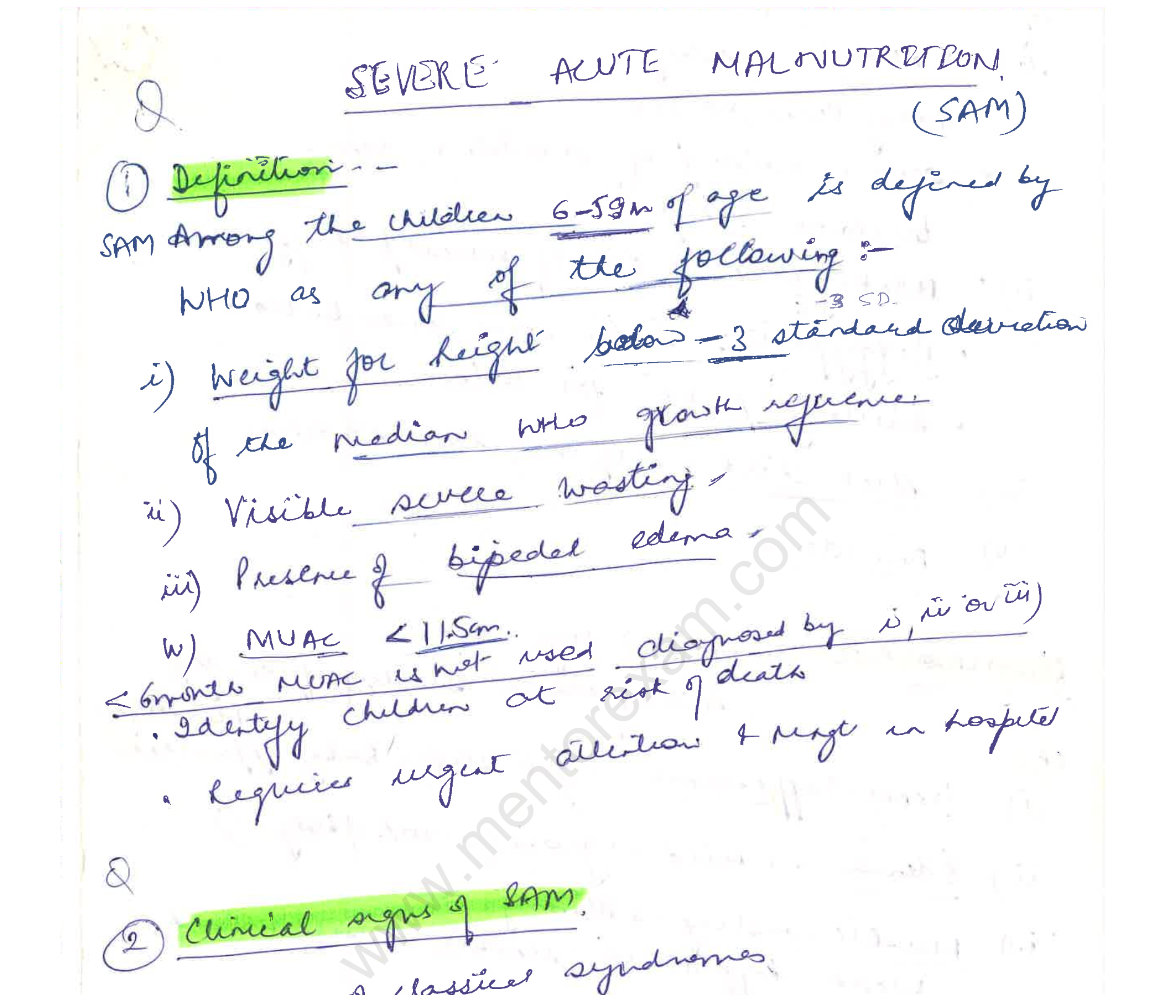 SEVERE ACUTE MALNUTRITION.
(SAM)
Q
① Definition - -
SAM Among the children 6-59m of age is defined by
WHO as any of the following :-
-3 SD.
i) Weight for height below -3 standard deviation
of the median WHO growth reference
ii) Visible severe wasting
iii) Presence of bipedal edema
iv) MUAC < 11.5cm.
<6months MUAC is not used diagnosed by i, ii or iii)
• Identify children at risk of death
• Requires urgent attention & mngt in hospital
Q
② Clinical signs of SAM.
classical syndromes
www.mentorexam.com